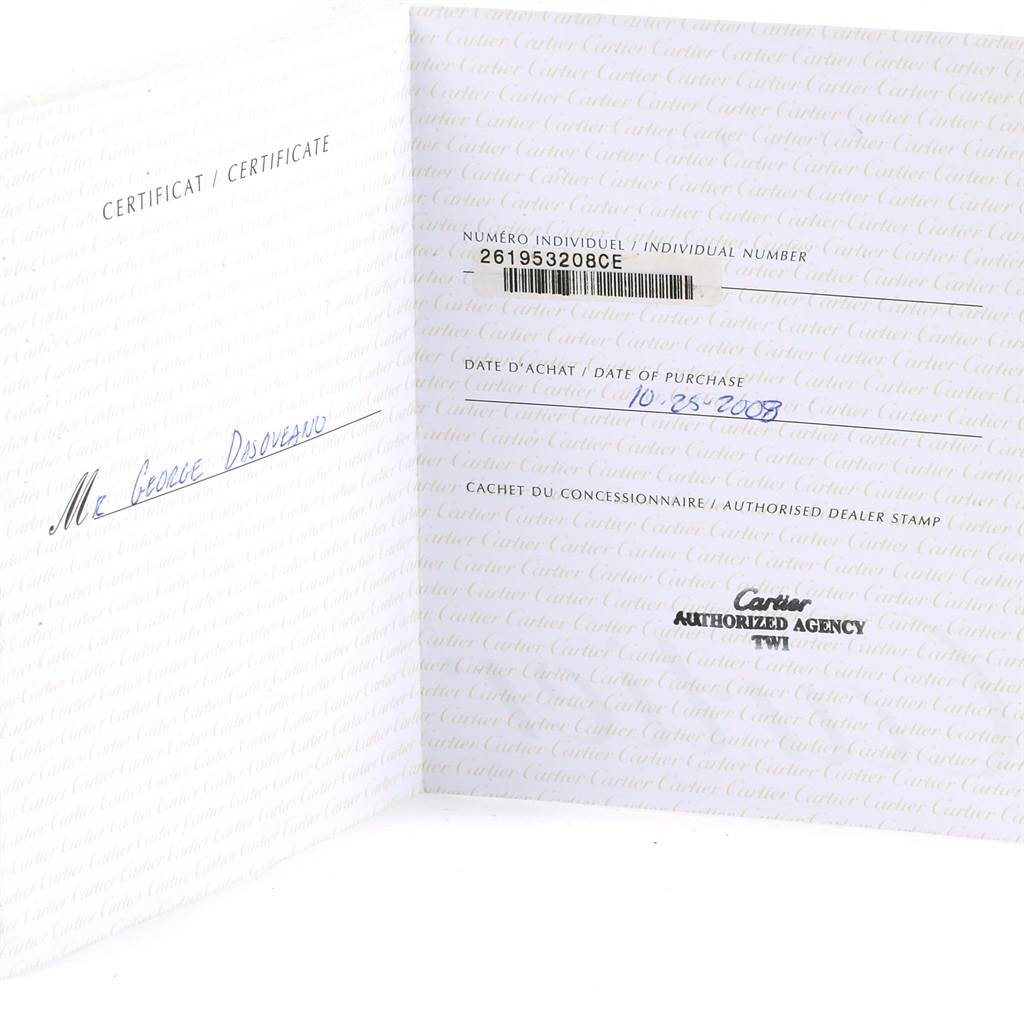 CERTIFICAT / CERTIFICATE
Mr GEORGE
NUMÉRO INDIVIDUEL / INDIVIDUAL NUMBER
261953208CE
DATE D'ACHAT / DATE OF PURCHASE
10-25-2008
CACHET DU CONCESSIONNAIRE / AUTHORISED DEALER STAMP
Cartier
AUTHORIZED AGENCY
TWI